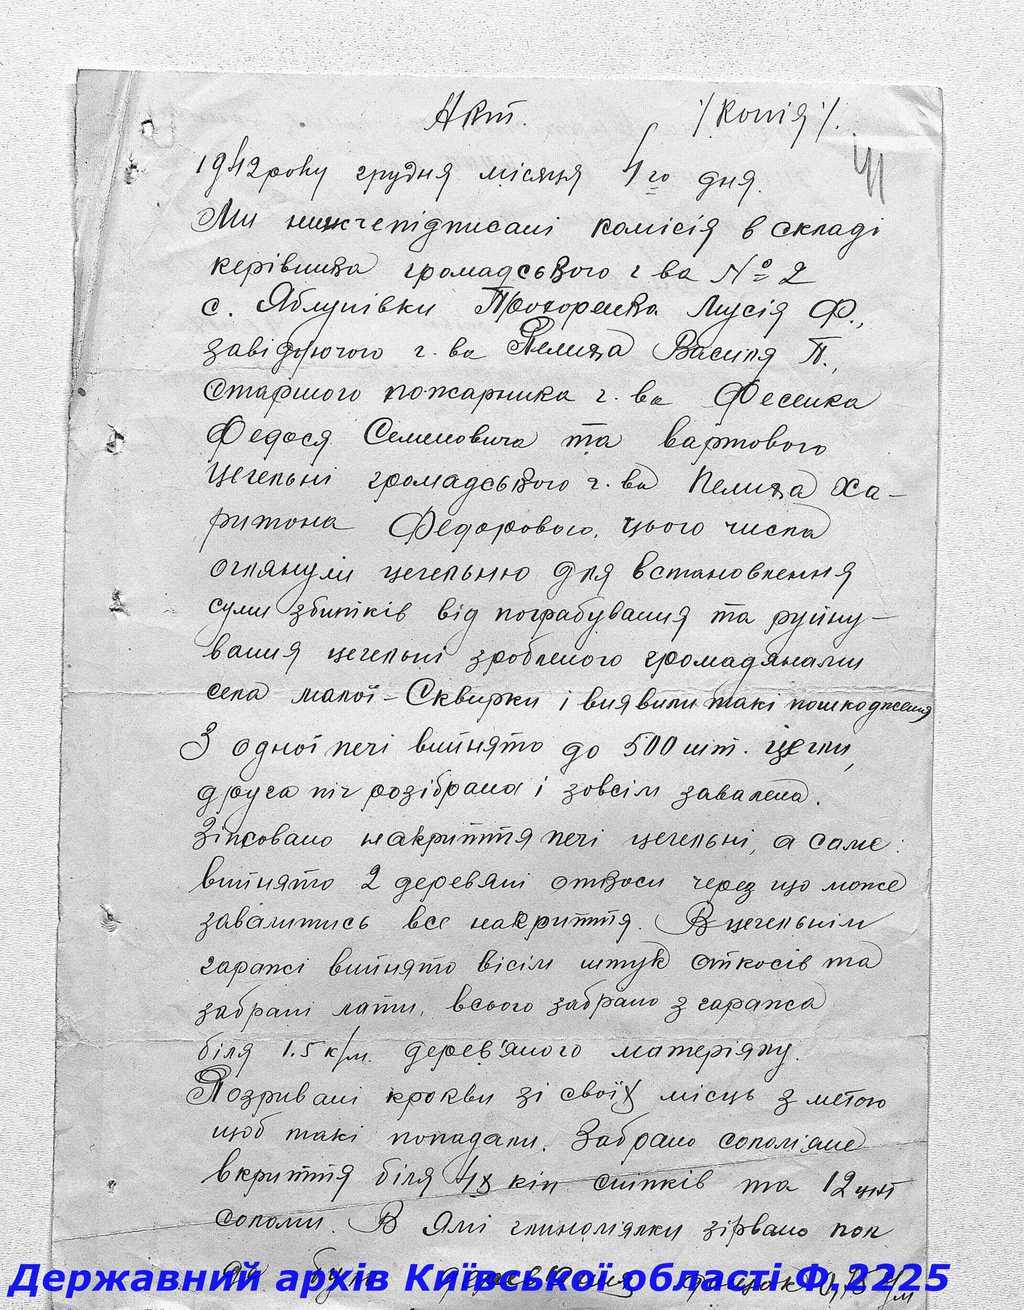 Акт. /Копія/.
41
1942 року грудня місяця 4го дня.
Ми нижчепідписані комісія в складі
керівника громадського г-ва № 2
с. Яблунівки Прохоренка Мусія Ф.,
завідуючого г. ва Пелиха Василя П.,
Старшого пожарника г. ва Фесенка
Федося Семеновича та вартового
Цегельні громадського г. ва Пелиха Ха-
ритона Федорового, цього числа
оглянули цегельню для встановлення
суми збитків від пограбування та руйну-
вання цегельні зробленого громадянами
села малої-Сквирки і виявили такі пошкодження
З одної печі вийнято до 500 шт. цегли,
друга піч розібрана і зовсім завалена.
Зіпсовано накриття печі цегельні, а саме:
вийнято 2 деревяні откоси через що може
завалитись все накриття. В цегельнім
гаражі вийнято вісім штук откосів та
забрані лати, всього забрано з гаража
біля 1.5 к/м. дерев'яного матеріялу.
Позривані крокви зі своїх місць з метою
щоб такі попадали. Забрано солом'яне
вкриття біля 4х кіп сніпків та 12 цнт
соломи. В ямі глиномялки зірвано
був
Державний архів Київської області Ф.2225